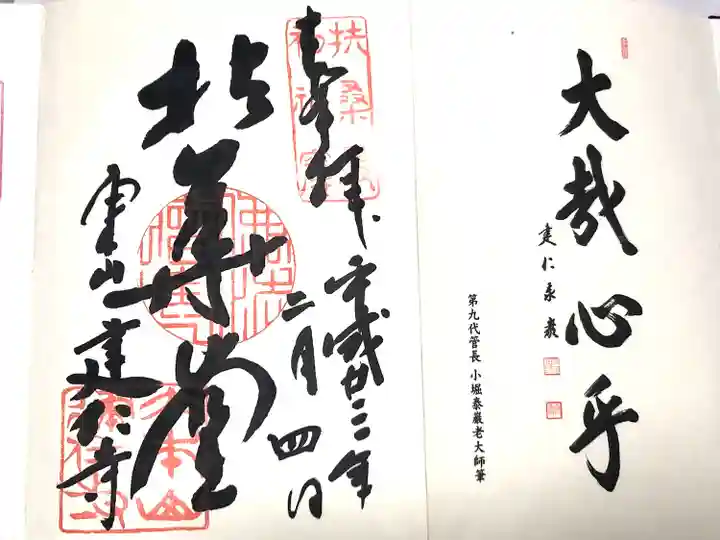 大哉心乎
建仁泰巌
第九代管長 小堀泰巌老大師筆
奉拝
平成廿三年
二月四日
拈華堂
東山建仁寺